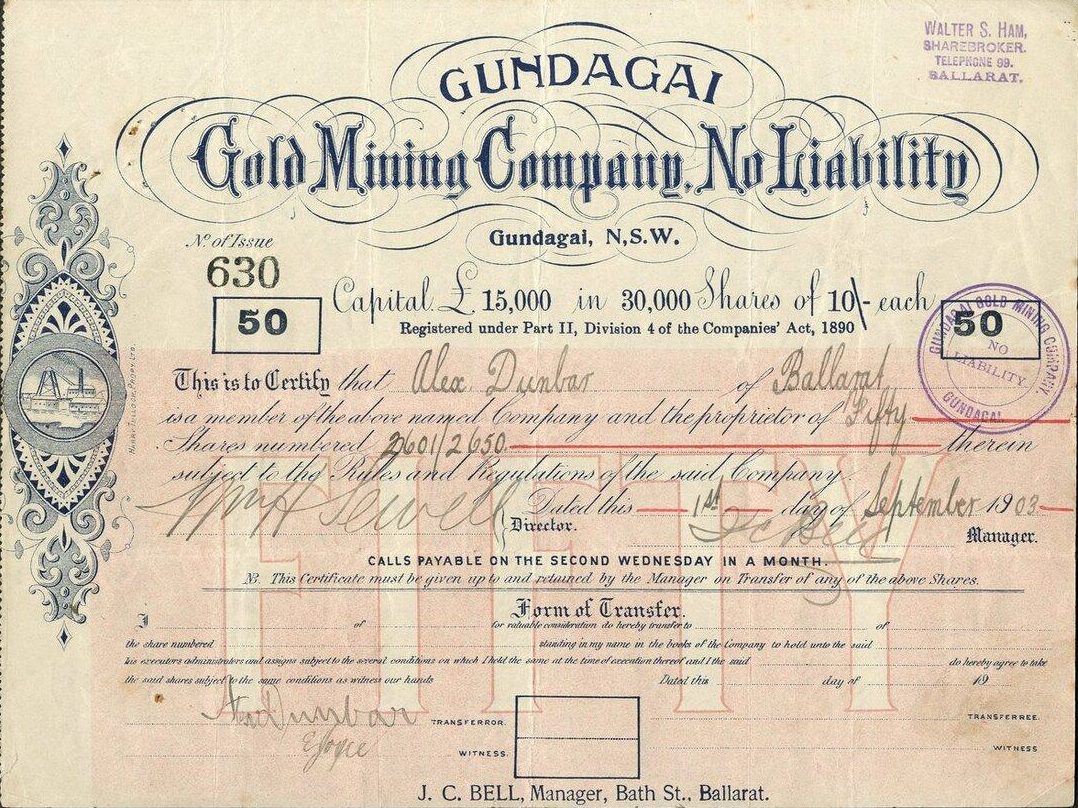 WALTER S. HAM,
SHAREBROKER.
TELEPHONE 99.
BALLARAT.
GUNDAGAI
Gold Mining Company, No Liability
Gundagai, N.S.W.
No of Issue
630
50
Capital £ 15,000 in 30,000 Shares of 10/- each
Registered under Part II, Division 4 of the Companies' Act, 1890
50
GUNDAGAI GOLD MINING COMPANY
NO
LIABILITY.
GUNDAGAI
This is to Certify that Alex. Dunbar of Ballarat
is a member of the above named Company and the proprietor of Fifty
Shares numbered 2601/2650. therein
subject to the Rules and Regulations of the said Company.
Wm H Sewell Dated this 1st day of September 1903
Director. J C Bell Manager.
CALLS PAYABLE ON THE SECOND WEDNESDAY IN A MONTH.
NB. This Certificate must be given up to and retained by the Manager on Transfer of any of the above Shares.
FIFTY
Form of Transfer.
I of for valuable consideration do hereby transfer to of
the share numbered standing in my name in the books of the Company to hold unto the said
his executors administrators and assigns subject to the several conditions on which I held the same at the time of execution thereof and I the said do hereby agree to take
the said shares subject to the same conditions as witness our hands Dated this day of 19
Dunbar TRANSFERROR. TRANSFERREE.
WITNESS. WITNESS
J. C. BELL, Manager, Bath St., Ballarat.